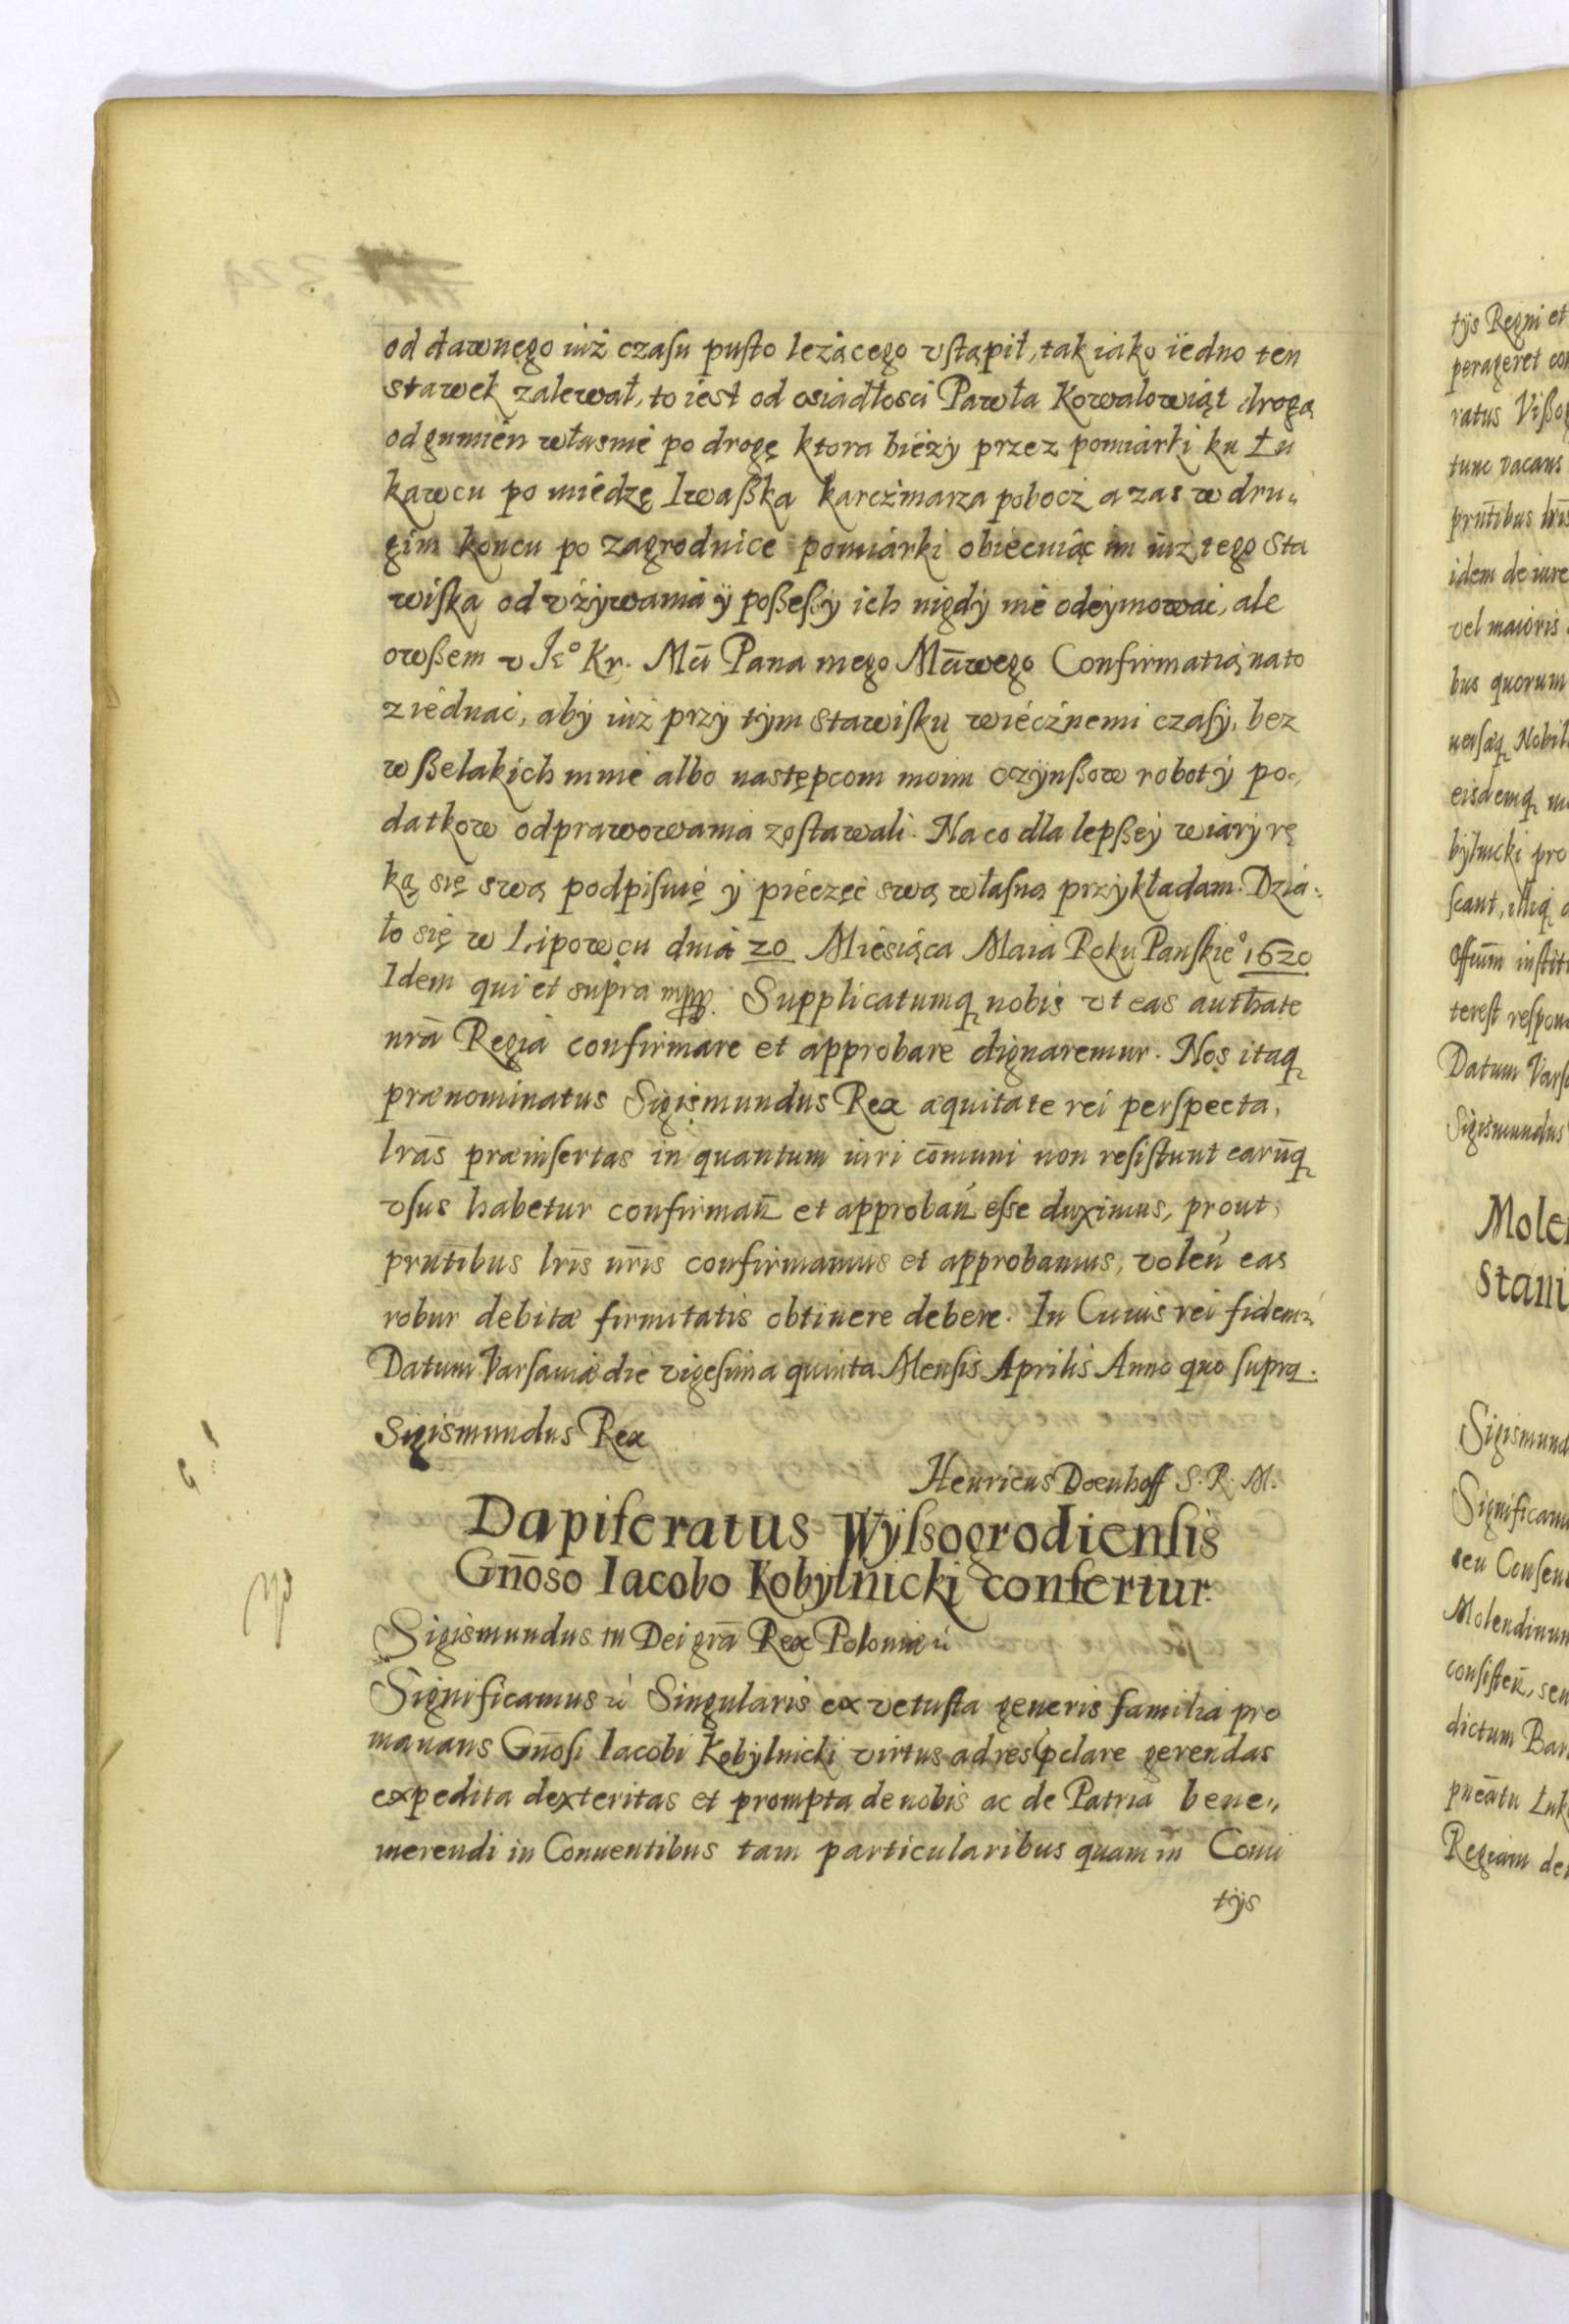 od dawnego iuż czasu pusto leżącego vstąpił, tak iako iedno ten
stawek zalewał, to iest od osiadłosci Pawła Kowalowiąt drogą
od gumien własnie po drogę ktora bieży przez pomiarki ku Łu
kawcu po miedzę Iwaßka karczmarza pobocż a zas w dru„
gim koncu po zagrodnice pomiarki obiecuiąc im iuż tego sta
wiska od vżywania ÿ poßeßÿ ich nigdÿ nie odeÿmować, ale
owßem v Je⁰ Kr. Mći Pana mego Mćiwego Confirmatią nato
ziednać, abÿ iuż przÿ tÿm stawisku wiecżnemi czasÿ, bez
wßelakich mnie albo następcom moim czÿnßow robotÿ po„
datkow odprawowania zostawali. Na co dla lepßeÿ wiarÿ rę
ką się swą podpisuię ÿ pieczęć swą własną przÿkładam. Dzia„
ło się w Lipowcu dnia 20 Miesiąca Maia Roku Panskie⁰ 1620
Idem qui et supra mpp. Supplicatumq nobis vt eas authãte
nrã Regia confirmare et approbare dignaremur. Nos itaq
prænominatus Sigismundus Rex æquitate rei perspecta,
lrãs præinsertas in quantum iuri cõmuni non resistunt earũq
vsus habetur confirmañ et approbañ esse duximus, prout
prñtibus lrĩs nrĩs confirmamus et approbamus, voleñ eas
robur debitæ firmitatis obtinere debere. In Cuius rei fidem ꝛ
Datum Varsaviæ die vigesima quinta Mensis Aprilis Anno quo supra.
Sigismundus Rex
Henricus Doenhoff S. R. M.
Dapiferatus Wÿssogrodiensis
Gñoso Iacobo Kobÿlnicki confertur.
Sigismundus III Dei grã Rex Poloniæ ꝛ
Significamus ꝛ Singularis ex vetusta generis familia pro
manans Gñosi Iacobi Kobÿlnicki virtus ad res pclare gerendas
expedita dexteritas et prompta de nobis ac de Patria bene„
merendi in Conuentibus tam particularibus quam in Comi
tÿs
tÿs Regni et
perageret
ratus
tunc vacans
prñtibus
idem de iure
vel maioris
bus quorum
eisdemq
bÿlnicki pro
scant, illiq
Offium
terest
Datum
Sigismundus
Significamus
seu
Molendinum
dictum
Regiam